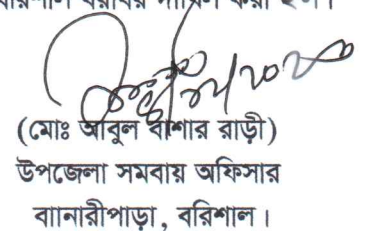 বরাবর দাখিল করা হল।
(মোঃ আবুল বাশার রাড়ী)
উপজেলা সমবায় অফিসার
বাানারীপাড়া, বরিশাল।